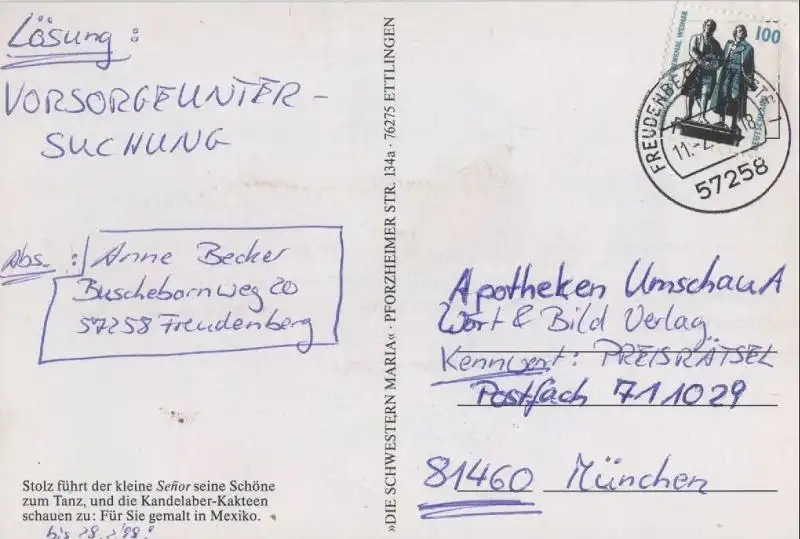 Lösung :
VORSORGEUNTER -
SUCHUNG
Abs. : Anne Becker
Buschebornweg 20
57258 Freudenberg
Stolz führt der kleine Señor seine Schöne
zum Tanz, und die Kandelaber-Kakteen
schauen zu: Für Sie gemalt in Mexiko.
bis 28.2.98!
»DIE SCHWESTERN MARIA« · PFORZHEIMER STR. 134a · 76275 ETTLINGEN
100
DEUTSCHLAND
FREUDENBERG
11.-2.
18
57258
Apotheken UmschauA
Wort & Bild Verlag
Kennwort: PREISRÄTSEL
Postfach 711029
81460 München